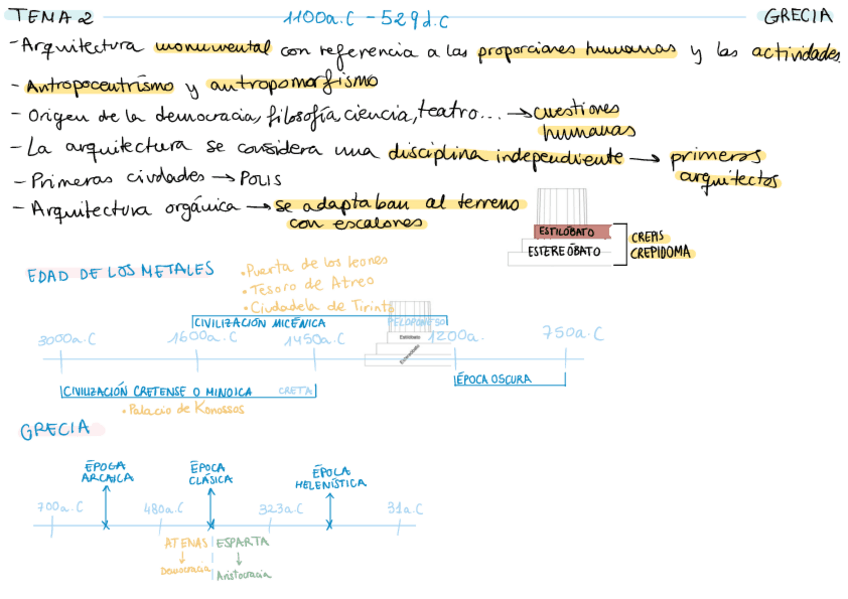 TEMA 2 1100a.C - 529d.C GRECIA
- Arquitectura monumental con referencia a las proporciones humanas y las actividades.
- Antropocentrismo y antropomorfismo
- Origen de la democracia, filosofía, ciencia, teatro... → cuestiones
humanas
- La arquitectura se considera una disciplina independiente → primeros
arquitectos
- Primeras ciudades → POLIS
- Arquitectura orgánica → se adaptaban al terreno
con escalones
ESTILÓBATO
ESTEREÓBATO
CREPIS
CREPIDOMA
EDAD DE LOS METALES
• Puerta de los leones
• Tesoro de Atreo
• Ciudadela de Tirinto
CIVILIZACIÓN MICÉNICA PELOPONESO
3000a.C 1600a.C 1450a.C 1200a. 750a.C
Estilóbato
Estereóbato
CIVILIZACIÓN CRETENSE O MINOICA CRETA
ÉPOCA OSCURA
• Palacio de Konossos
GRECIA
ÉPOCA
ARCAICA
ÉPOCA
CLÁSICA
ÉPOCA
HELENÍSTICA
700a.C 480a.C 323a.C 31a.C
ATENAS ESPARTA
Democracia Aristocracia